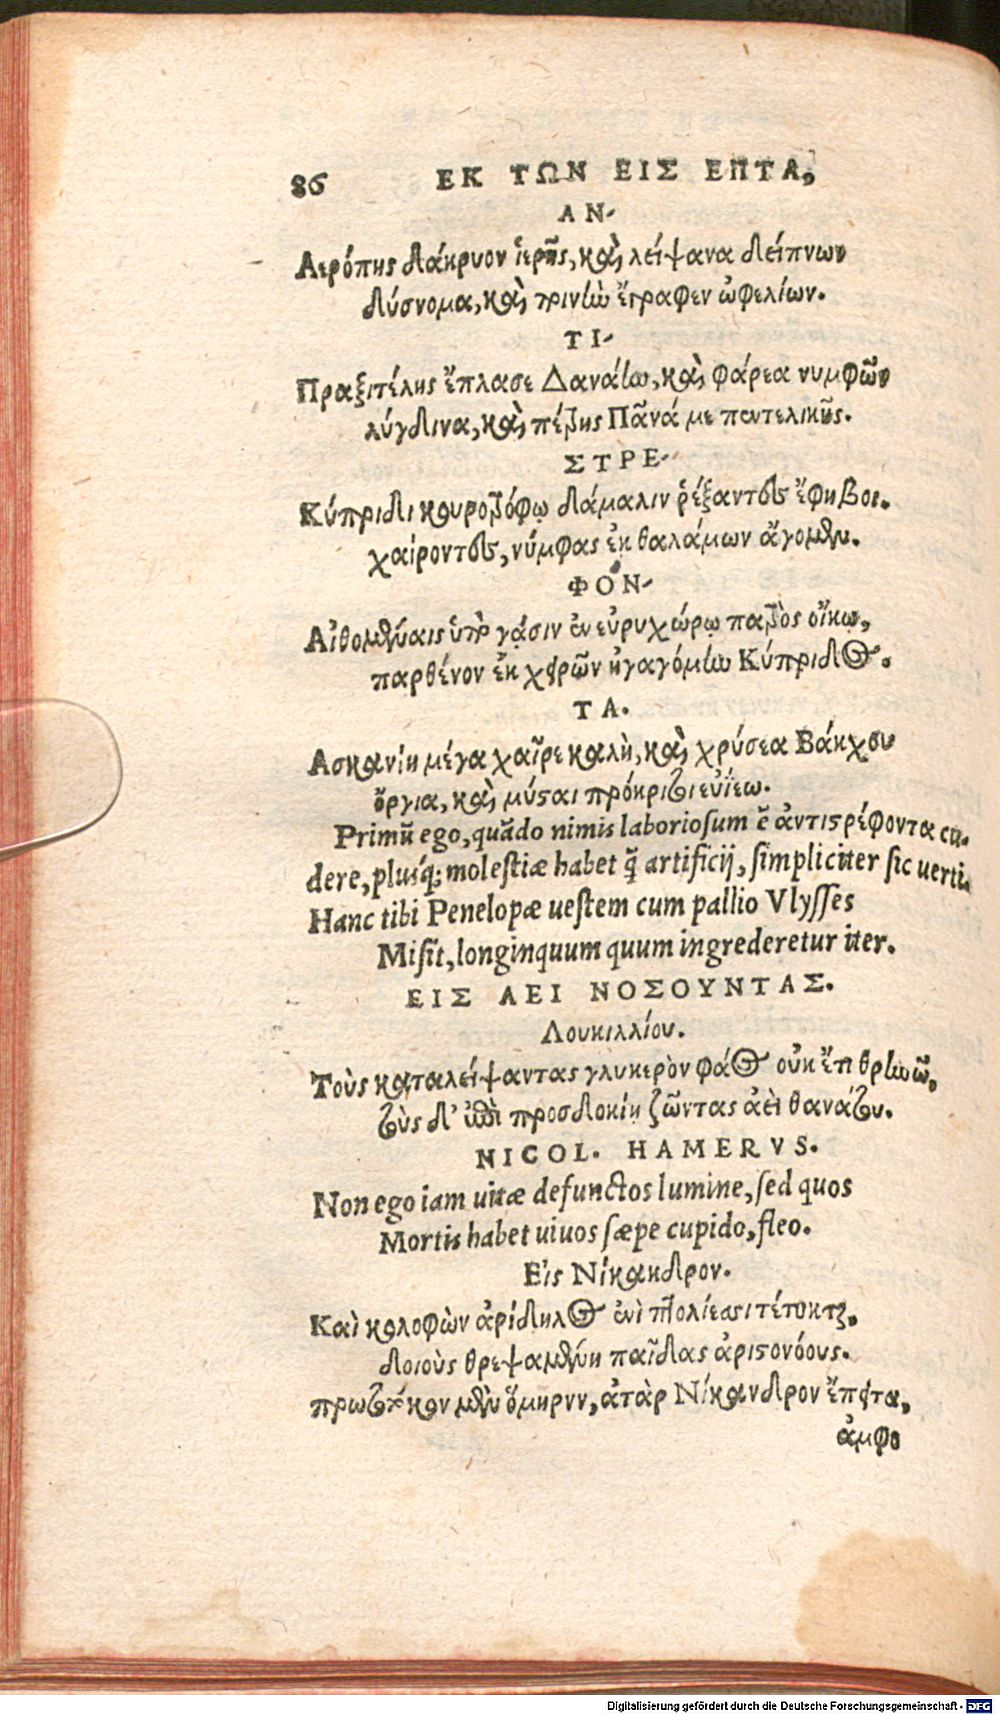 86 ΕΚ ΤΩΝ ΕΙΣ ΕΠΤΑ,
ΑΝ-
Αερόπης δάκρυον ἱερῆς, καὶ λείψανα δείπνων
δύσνομα, καὶ ποινὴν ἔγραφεν ὠφελίων.
ΤΙ-
Πραξιτέλης ἔπλασε Δαναίω, καὶ φάρεα νυμφῶν
λύγδινα, καὶ πέτρης Πᾶνά με πεντελικῆς.
ΣΤΡΕ-
Κύπριδι κουροτρόφῳ δάμαλιν ῥέξαντες ἔφηβοι.
χαίροντες, νύμφας ἐκ θαλάμων ἄγομεν.
ΦΟΝ-
Αἰθομέναις ὑπὸ δᾴσιν ἐν εὐρυχώρῳ πατρὸς οἴκῳ,
παρθένον ἐκ χειρῶν ἠγαγόμην Κύπριδος.
ΤΑ.
Ασκανίη μέγα χαῖρε καλὴ, καὶ χρύσεα Βάκχου
ὄργια, καὶ μύσται πρόκριτοι εὐΐεω.
Primũ ego, quãdo nimis laboriosum ẽ ἀντιστρέφοντα cu-
dere, plusq́; molestiæ habet q̃ artificij, simpliciter sic uerti.
Hanc tibi Penelopæ uestem cum pallio Vlysses
Misit, longinquum quum ingrederetur iter.
ΕΙΣ ΑΕΙ ΝΟΣΟΥΝΤΑΣ.
Λουκιλλίου.
Τοὺς καταλείψαντας γλυκερὸν φάος οὐκ ἔτι θρηνῶ,
τοὺς δ' ἐπὶ προσδοκίῃ ζῶντας ἀεὶ θανάτου.
NICOL. HAMERVS.
Non ego iam uitæ defunctos lumine, sed quos
Mortis habet uiuos sæpe cupido, fleo.
Εἰς Νίκανδρον.
Καὶ κολοφὼν ἀρίδηλος ἐνὶ πτολίεσσι τέτυκται,
δοιοὺς θρεψαμένη παῖδας ἀριστονόους.
πρωτότοκον μὲν ὅμηρνν, ἀτὰρ Νίκανδρον ἔπειτα,
ἀμφο
Digitalisierung gefördert durch die Deutsche Forschungsgemeinschaft - DFG